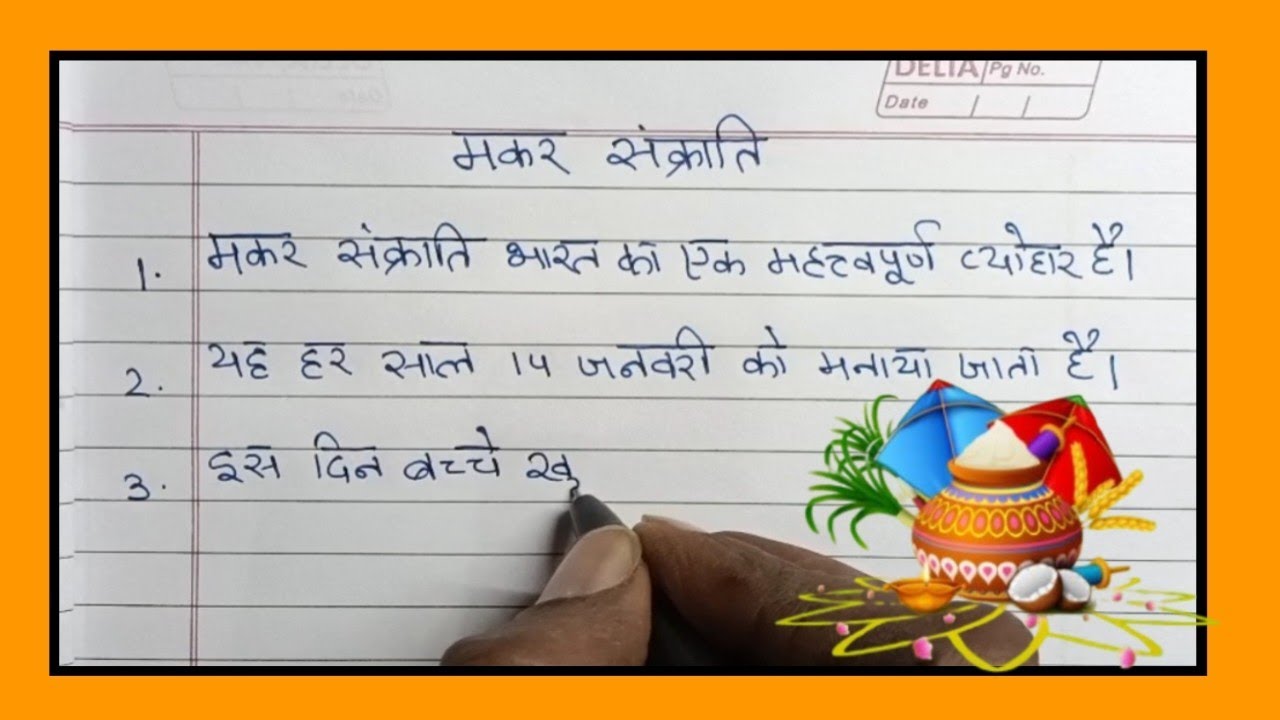 DELTA Pg No.
Date / /
मकर संक्राति
1. मकर संक्राति भारत का एक महत्वपूर्ण त्योहार है।
2. यह हर साल 14 जनवरी को मनाया जाता है।
3. इस दिन बच्चे खू